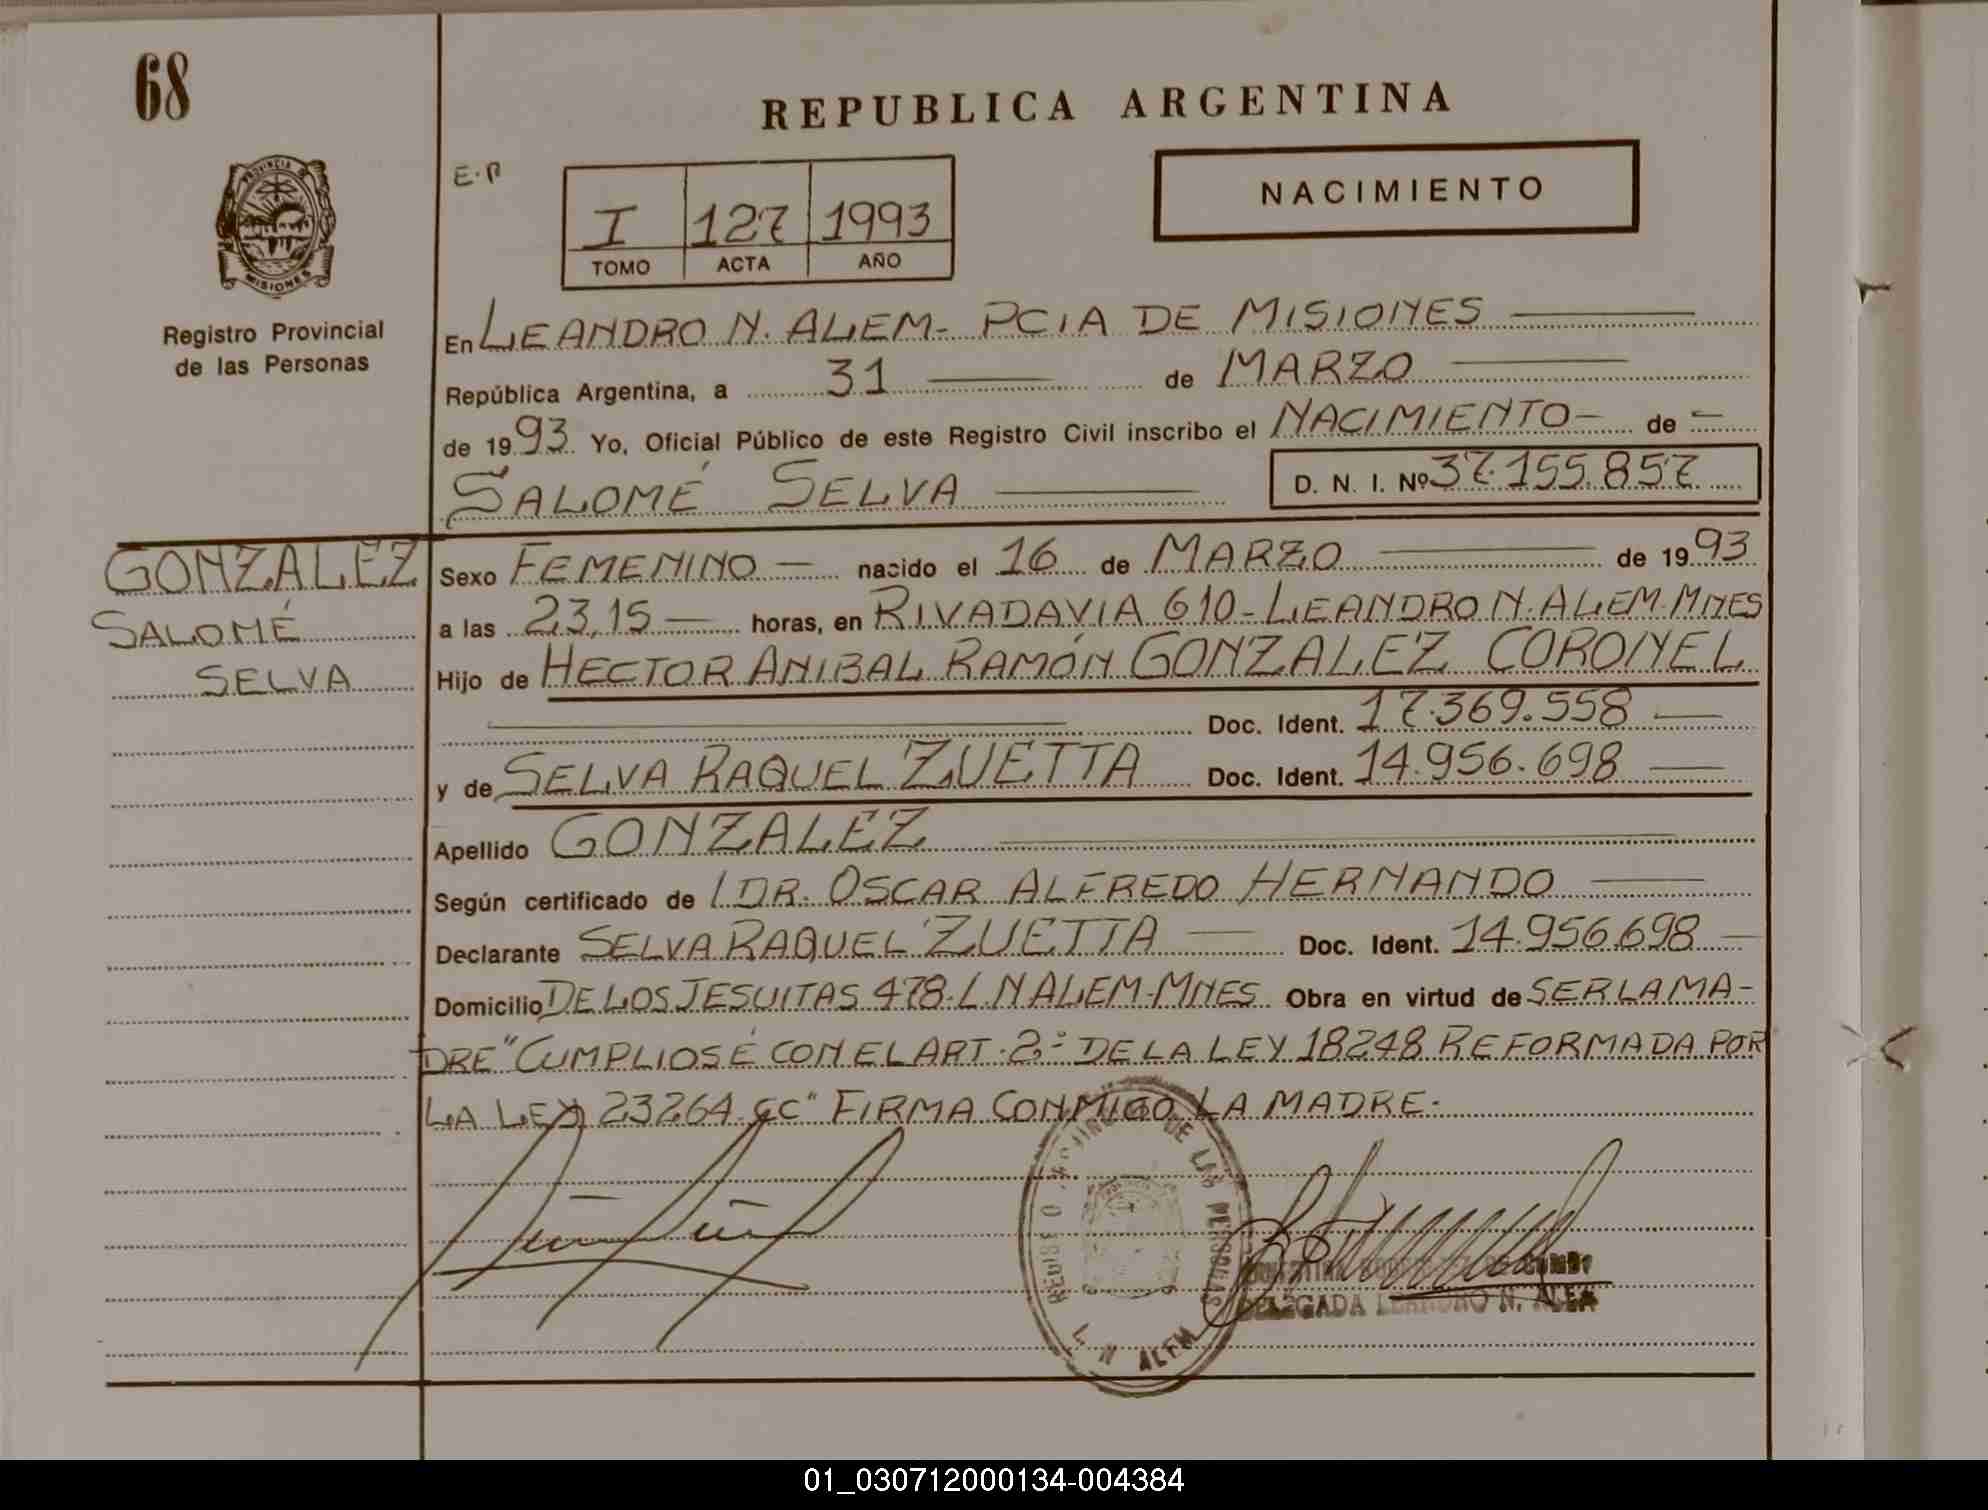 68
REPUBLICA ARGENTINA
PROVINCIA DE
MISIONES
Registro Provincial
de las Personas
I 127 1993
TOMO ACTA AÑO
NACIMIENTO
En LEANDRO N. ALEM - PCIA DE MISIONES
República Argentina, a 31 de MARZO
de 1993 Yo, Oficial Público de este Registro Civil inscribo el NACIMIENTO - de -
SALOMÉ SELVA D. N. I. Nº 37.155.857
GONZALEZ
SALOMÉ
SELVA
Sexo FEMENINO - nacido el 16 de MARZO de 1993
a las 23,15 horas, en RIVADAVIA 610 - LEANDRO N. ALEM. MNES
Hijo de HECTOR ANIBAL RAMÓN GONZALEZ CORONEL
Doc. Ident. 17.369.558
y de SELVA RAQUEL ZUETTA Doc. Ident. 14.956.698
Apellido GONZALEZ
Según certificado de / DR. OSCAR ALFREDO HERNANDO
Declarante SELVA RAQUEL ZUETTA Doc. Ident. 14.956.698
Domicilio DE LOS JESUITAS 478. L.N ALEM - MNES Obra en virtud de SER LA MA-
DRE "CUMPLIOSÉ CON EL ART. 2º DE LA LEY 18248 REFORMADA POR
LA LEY 23264. CC" FIRMA CONMIGO LA MADRE.
DE LAS PERSONAS
L. N ALEM
DELEGADA LEANDRO N. ALEM
01_030712000134-004384